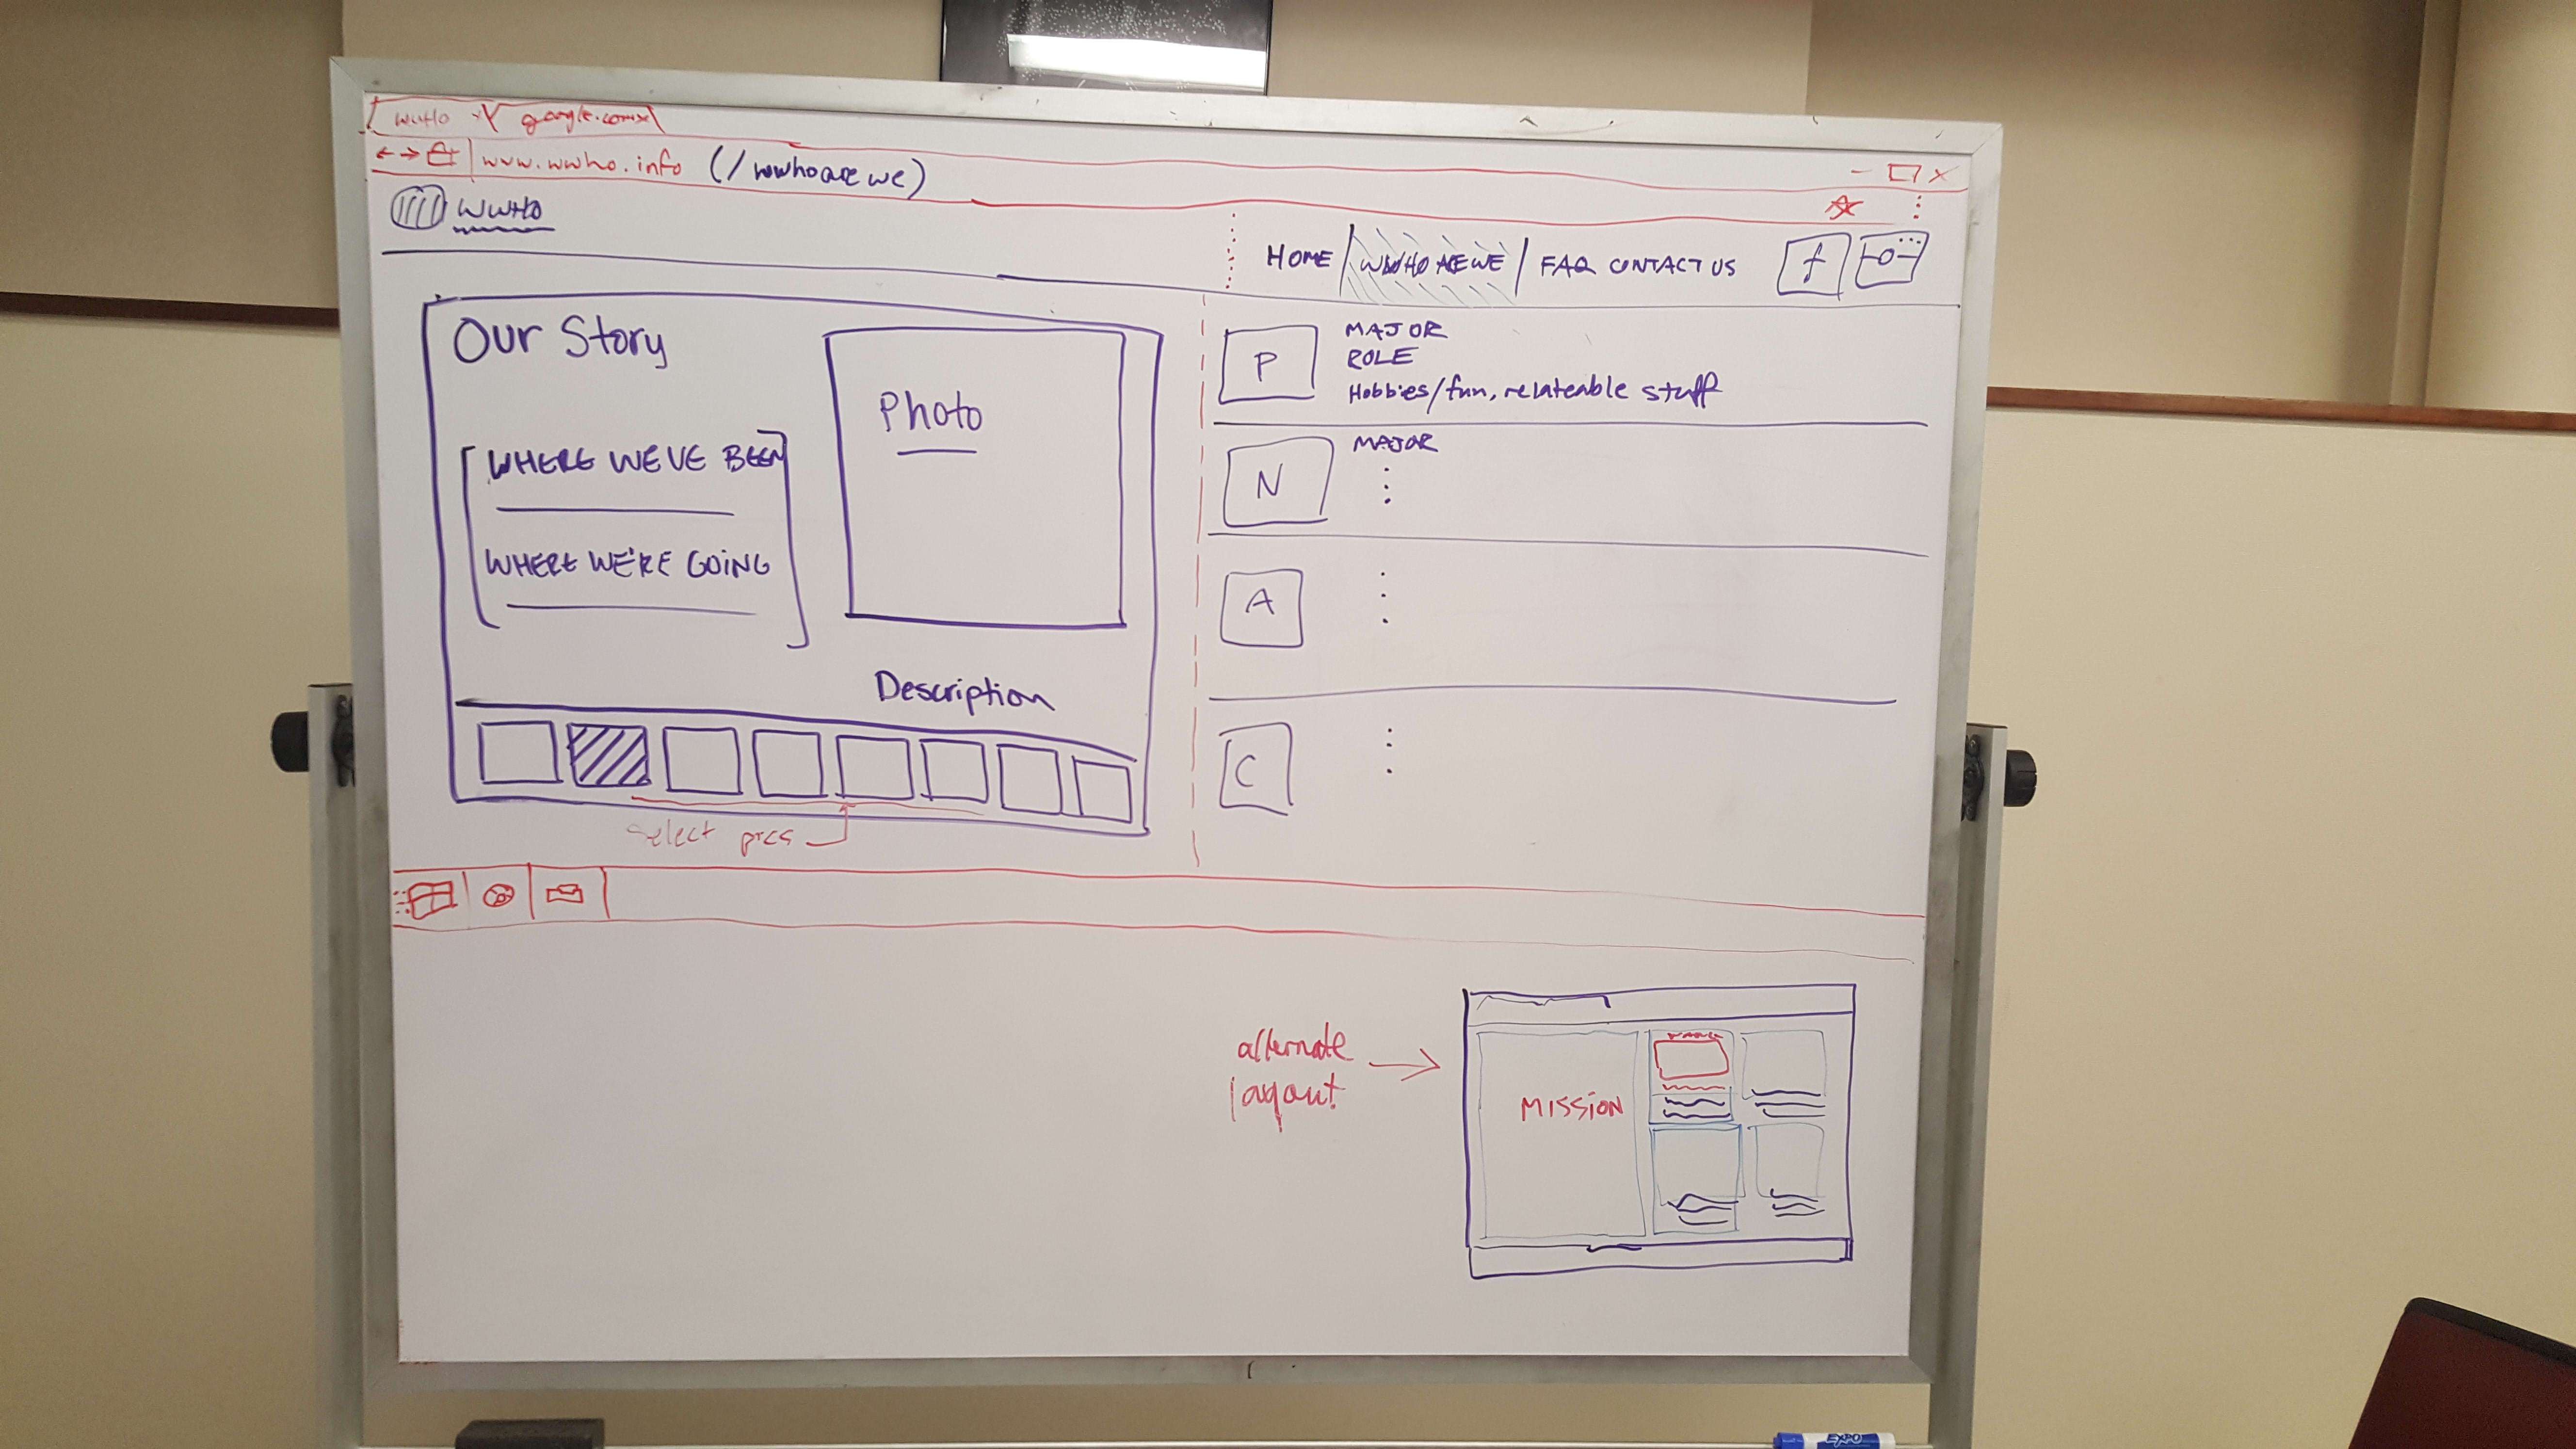 WWHO x google.com x
www.wwho.info (/wwhoarewe)
WWHO
HOME WWHO ARE WE FAQ CONTACT US f
Our Story
Photo
WHERE WE'VE BEEN
WHERE WE'RE GOING
Description
select pics
P
MAJOR
ROLE
Hobbies/fun, relateable stuff
N
MAJOR
A
C
alternate
layout
MISSION
EXPO